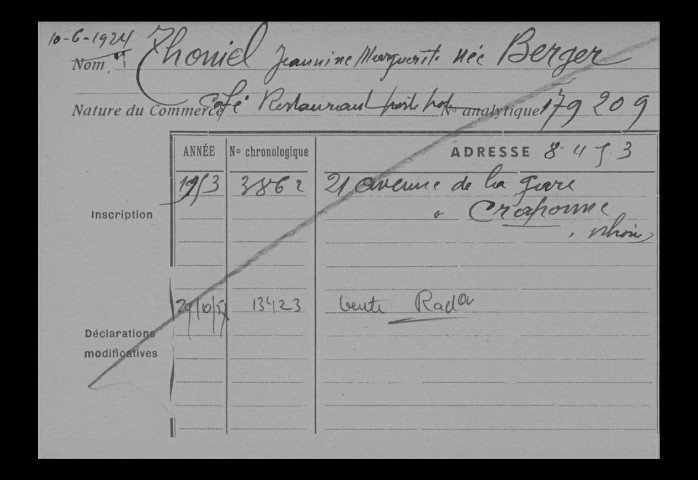 10-6-1924
Nom Thoniel Jeannine Marguerite née Berger
Nature du Commerce Café Restaurant N° analytique 179 209
ANNÉE N° chronologique ADRESSE 8-4-53
Inscription 1953 3862 21 avenue de la gare
" Craponne
Rhône
29/10/57 13423 vente Radon
Déclarations
modificatives